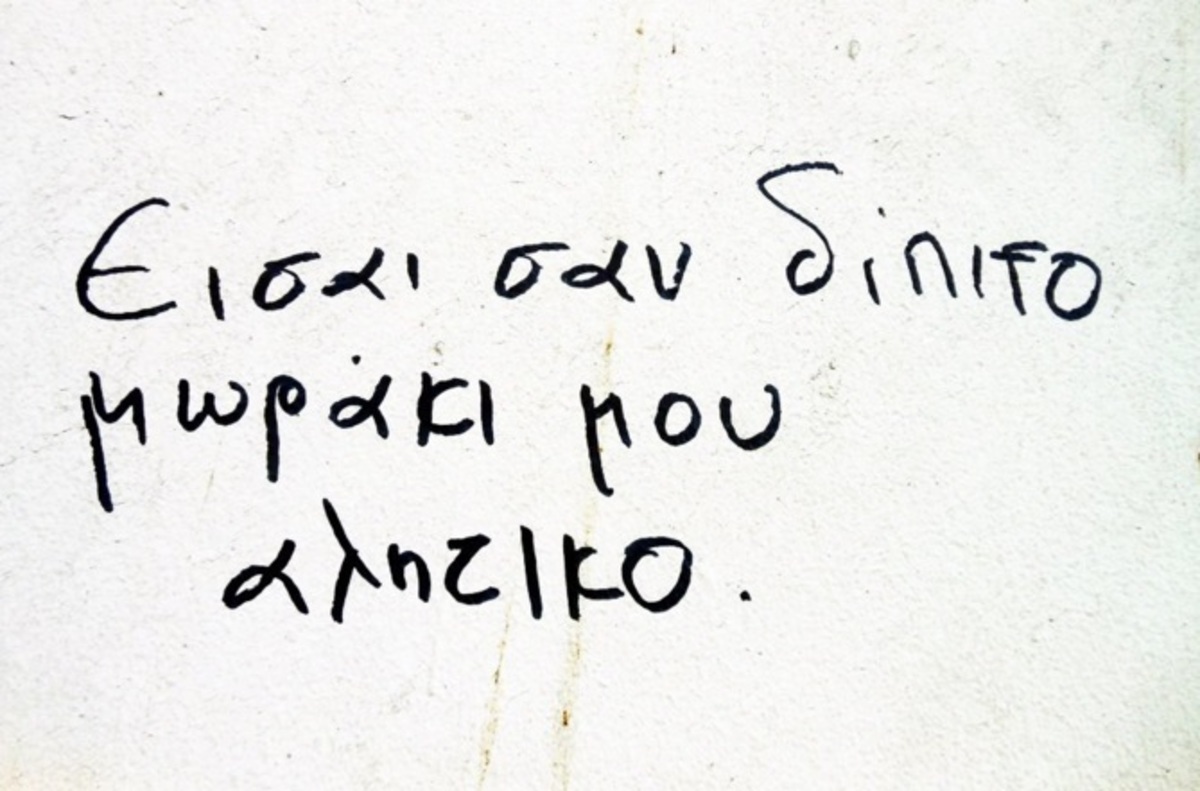 Εισαι σαν δίπιτο
μωράκι μου
αλητικο.